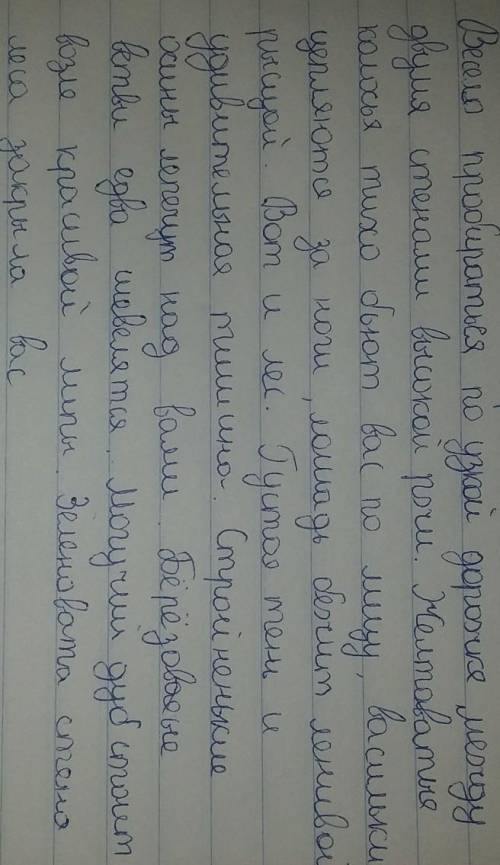 Весело пробираться по узкой дорожке между
двумя стенами высокой ржи. Желтоватые
колосья тихо бьют вас по лицу, васильки
цепляются за ноги, лошадь бежит ленивой
рысцой. Вот и лес. Густая тень и
удивительная тишина. Стройненькие
осины лепечут над вами. Берёзовые
ветви едва шевелятся. Могучий дуб стоит
возле красивой липы. Зеленовата стена
леса закрыла вас